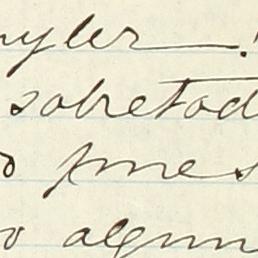 nyler—!
sobretod
o pines
o algun